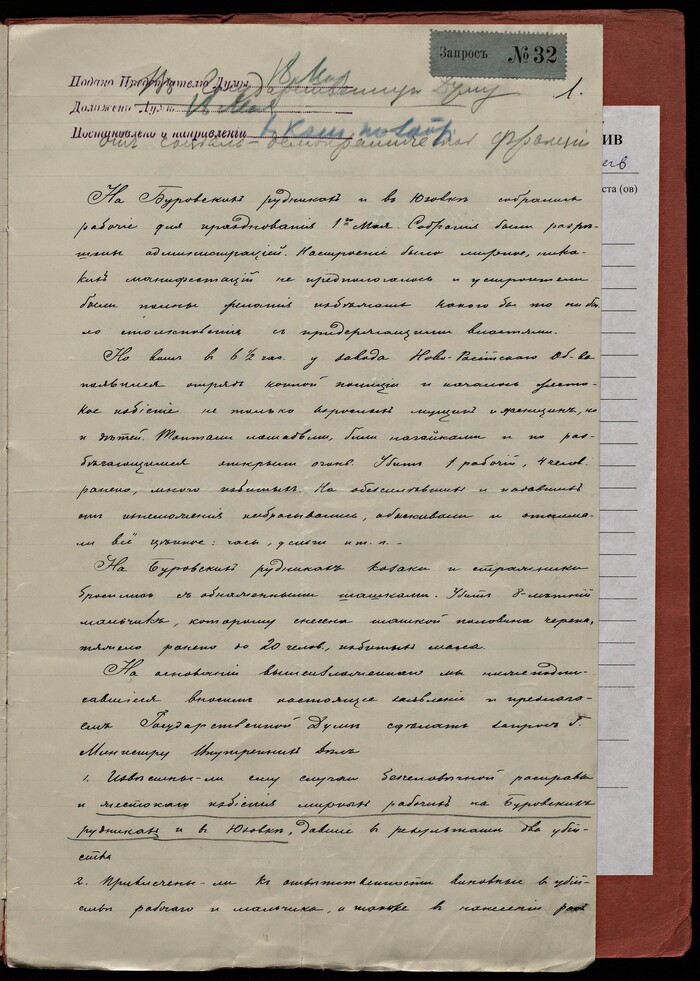 Запросъ № 32
Подано Предсѣдателю Думы 18 Мая
Въ Государственную Думу
1.
Доложено Думѣ 18 Мая
Постановлено и направленіи
отъ соціалъ-демократической фракціи
ИВ
ста (ов)
На Буровскихъ рудникахъ и въ Юзовкѣ собрались
рабочіе для празднованія 1го Мая. Собранія были разрѣ-
шены администраціей. Настроеніе было мирное, ника-
кихъ манифестацій не предполагалось и устроители
были полны желанія избѣжать какого бы то ни бы-
ло столкновенія съ придержащими властями.
Но вотъ в 6 1/2 час. у завода Ново-Рос. Об-ва
появился отрядъ конной полиціи и началось жесто-
кое избіеніе не только взрослыхъ мущинъ и женщинъ, но
и дѣтей. Топтали лошадьми, били нагайками и по раз-
бѣгающимся открыли огонь. Убитъ 1 рабочій, 4 челов.
ранено, много избитыхъ. На обезсилѣвшихъ и падавшихъ
отъ изнеможенія набрасывались, обыскивали и отнима-
ли всё цѣнное: часы, деньги и т. п. –
На Буровскихъ рудникахъ козаки и стражники
бросились съ обнаженными шашками. Убитъ 8-лѣтній
мальчикъ, которому снесена шашкой половина черепа,
тяжело ранено до 20 челов., избитыхъ масса.
На основаніи вышеизложеннаго мы нижеподпи-
савшіеся вносимъ настоящее заявленіе и предлага-
емъ Государственной Думѣ сдѣлать запросъ Г.
Министру Внутреннихъ дѣлъ
1. Извѣстны-ли ему случаи безсловычной расправы
и жестокаго избіенія мирныхъ рабочихъ на Буровскихъ
рудникахъ и въ Юзовкѣ, давшіе в результатѣ два убій-
ства
2. Привлечены-ли къ отвѣтственности виновные в убій-
ствѣ рабочаго и мальчика, а также в нанесеніи